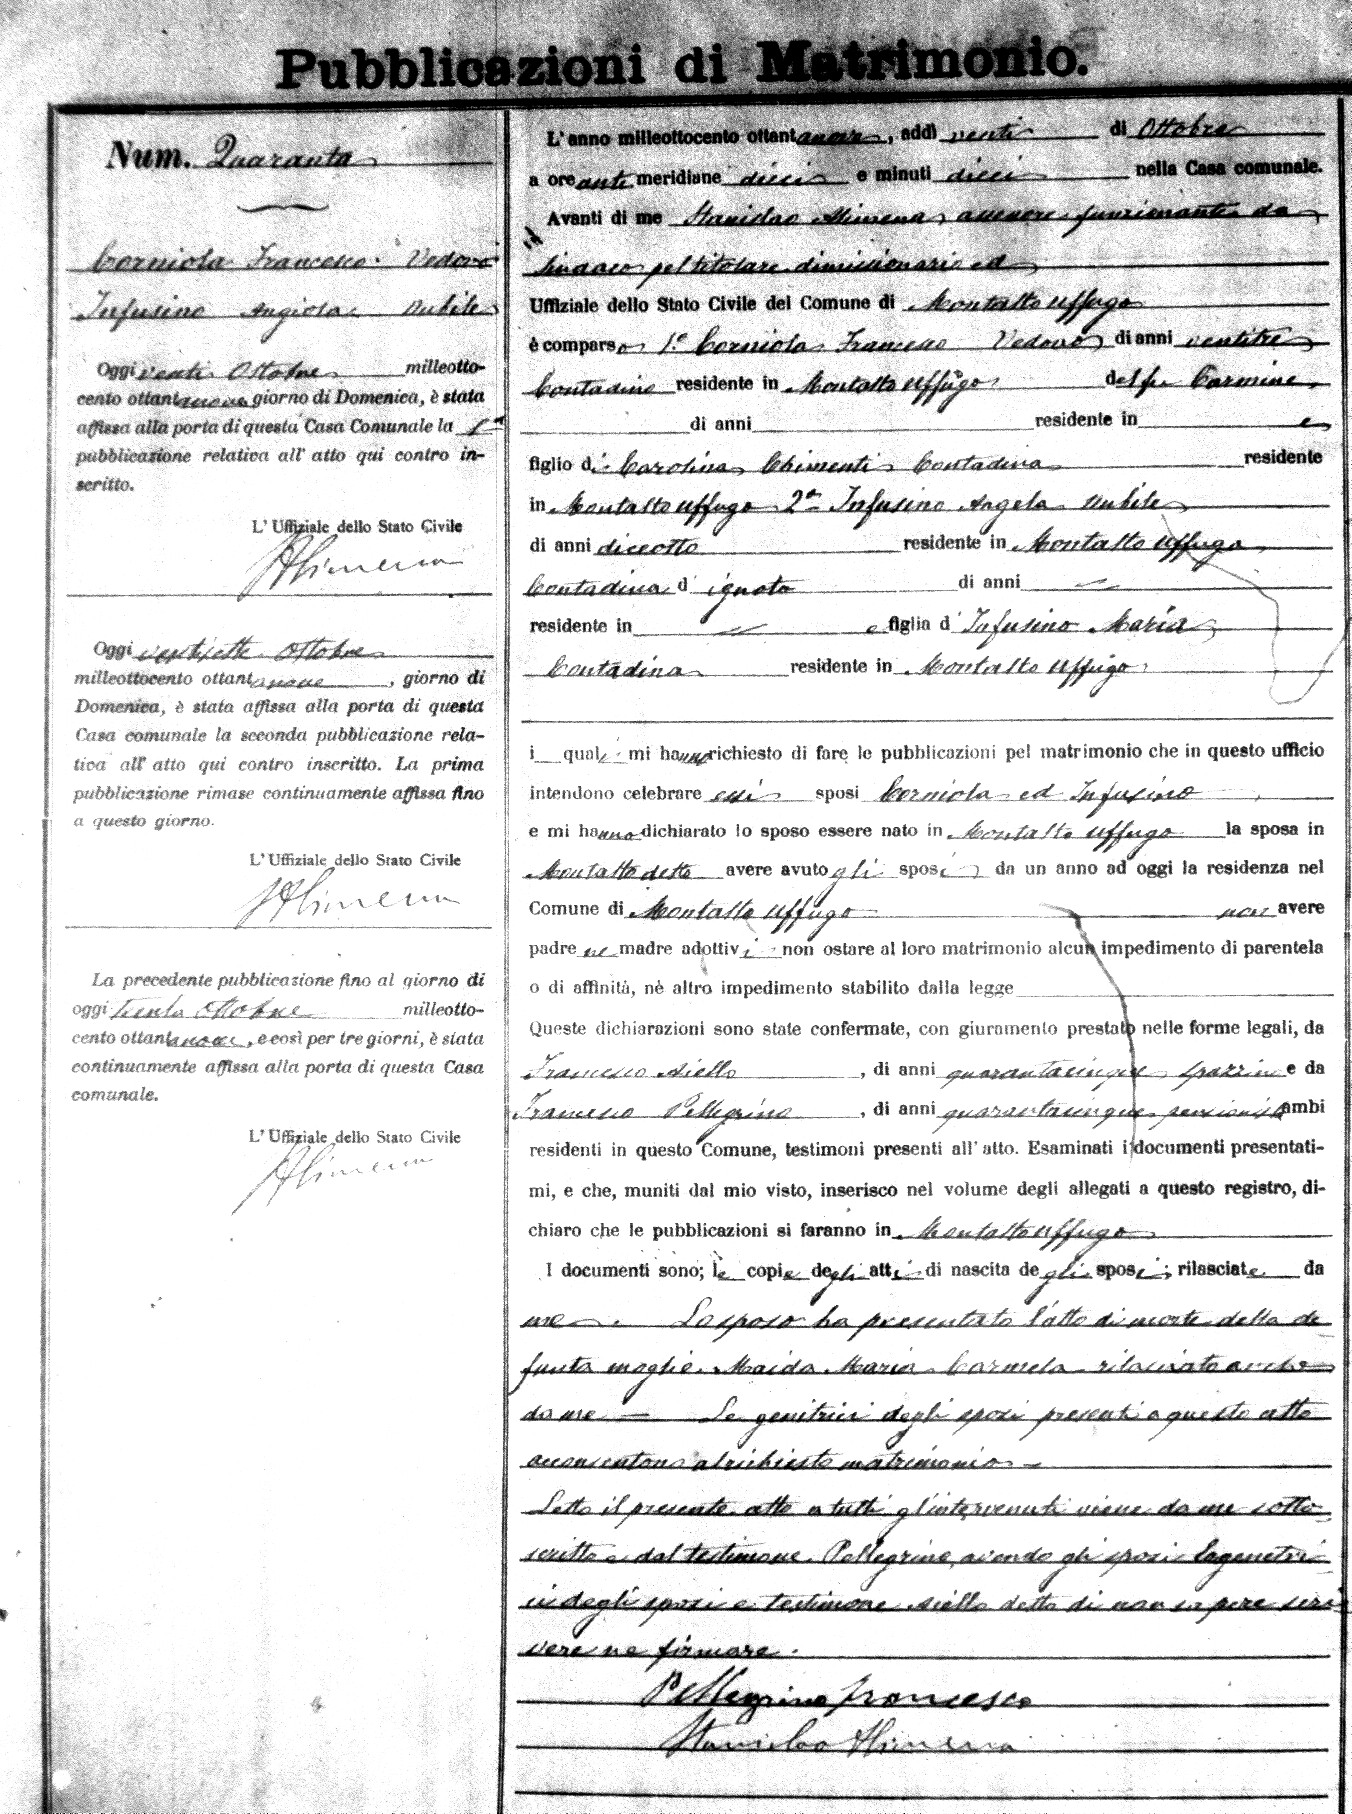 Pubblicazioni di Matrimonio.
Num. Quaranta
Corniola Francesco Vedovo
Infusino Angiola Nubile
Oggi venti Ottobre milleotto-
cento ottantanove giorno di Domenica, è stata
affissa alla porta di questa Casa Comunale la 1a
pubblicazione relativa all' atto qui contro in-
scritto.
L' Uffiziale dello Stato Civile
SAlimena
Oggi ventisette Ottobre
milleottocento ottantanove, giorno di
Domenica, è stata affissa alla porta di questa
Casa comunale la seconda pubblicazione rela-
tiva all' atto qui contro inscritto. La prima
pubblicazione rimase continuamente affissa fino
a questo giorno.
L' Uffiziale dello Stato Civile
SAlimena
La precedente pubblicazione fino al giorno di
oggi trenta Ottobre milleotto-
cento ottantanove, e così per tre giorni, è stata
continuamente affissa alla porta di questa Casa
comunale.
L' Uffiziale dello Stato Civile
SAlimena
L' anno milleottocento ottantanove, addì venti di Ottobre
a ore antimeridiane dieci e minuti dieci nella Casa comunale.
Avanti di me Stanislao Alimena assessore funzionante da
Sindaco pel titolare dimissionario ed
Uffiziale dello Stato Civile del Comune di Montalto Uffugo
è comparso 1.° Corniola Francesco Vedovo di anni ventitre
Contadino residente in Montalto Uffugo del fu Carmine,
di anni residente in e
figlio di Carolina Chimenti Contadina residente
in Montalto Uffugo 2a Infusino Angela nubile
di anni diceotto residente in Montalto Uffugo
Contadina d' ignoto di anni
residente in e figlia d' Infusino Maria
Contadina residente in Montalto Uffugo
i quali mi hanno richiesto di fare le pubblicazioni pel matrimonio che in questo ufficio
intendono celebrare essi sposi Corniola ed Infusino
e mi hanno dichiarato lo sposo essere nato in Montalto Uffugo la sposa in
Montalto detto avere avuto gli sposi da un anno ad oggi la residenza nel
Comune di Montalto Uffugo non avere
padre ne madre adottivi non ostare al loro matrimonio alcun impedimento di parentela
o di affinità, nè altro impedimento stabilito dalla legge
Queste dichiarazioni sono state confermate, con giuramento prestato nelle forme legali, da
Francesco Aiello, di anni quarantacinque spazzino e da
Francesco Pellegrino, di anni quarantacinque pensionista ambi
residenti in questo Comune, testimoni presenti all' atto. Esaminati i documenti presentati-
mi, e che, muniti dal mio visto, inserisco nel volume degli allegati a questo registro, di-
chiaro che le pubblicazioni si faranno in Montalto Uffugo
I documenti sono; le copie degli atti di nascita degli sposi; rilasciate da
me. Lo sposo ha presentato l'atto di morte della de
funta moglie Maida Maria Carmela rilasciato anche
da me — Le genitrici degli sposi presenti a questo atto
acconsentono al richiesto matrimonio —
Letto il presente atto a tutti gl'intervenuti viene da me sotto-
scritto e dal testimone Pellegrino, avendo gli sposi le genetri-
ci degli sposi e testimone Aiello detto di non sapere scri-
vere ne firmare.
Pellegrino Francesco
Stanislao Alimena